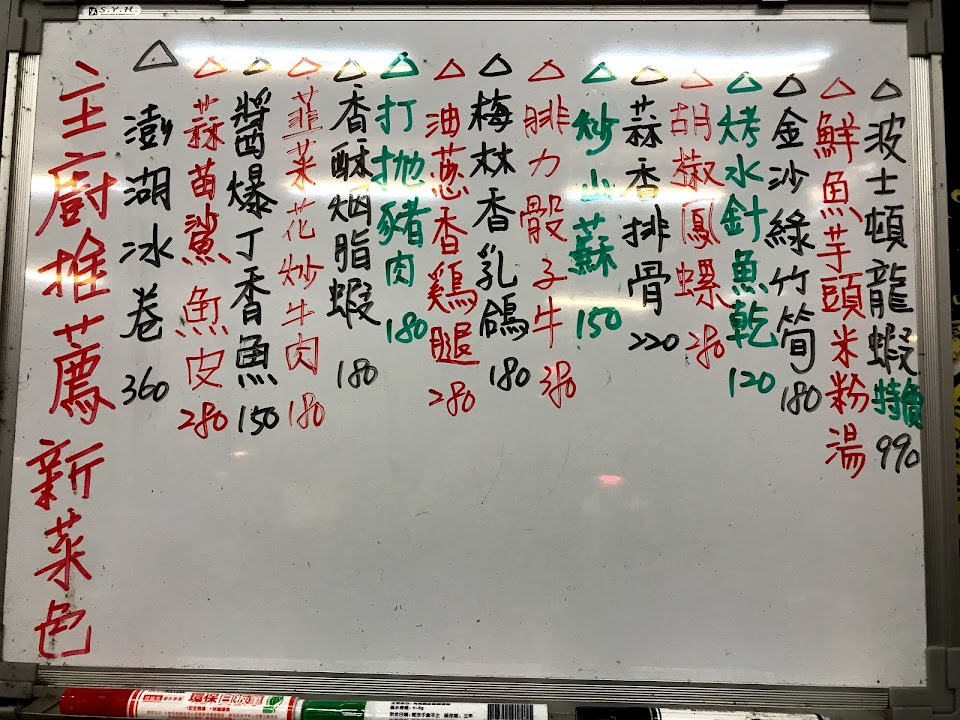 S.Y.H.
主廚推薦新菜色
△澎湖冰卷 360
△蒜苗鯊魚皮 280
△醬爆丁香魚 150
△韮菜花炒牛肉 180
△香酥胭脂蝦 180
△打抛豬肉 180
△油蔥香鷄腿 280
△梅林香乳鴿 180
△腓力骰子牛 380
△炒山蘇 150
△蒜香排骨 220
△胡椒鳳螺 280
△烤水針魚乾 120
△金沙綠竹筍 180
△鮮魚芋頭米粉湯
△波士頓龍蝦特價 990
環保